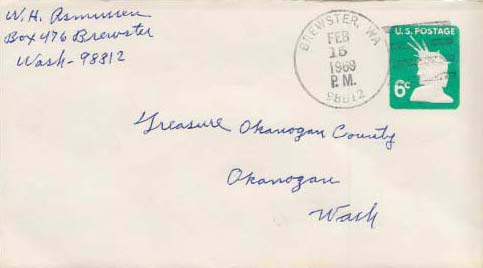 W. H. Rasmussen
Box 476 Brewster
Wash- 98812
BREWSTER, WA
FEB
15
1969
P.M.
98812
U.S. POSTAGE
6c
Treasure Okanogan County
Okanogan
Wash